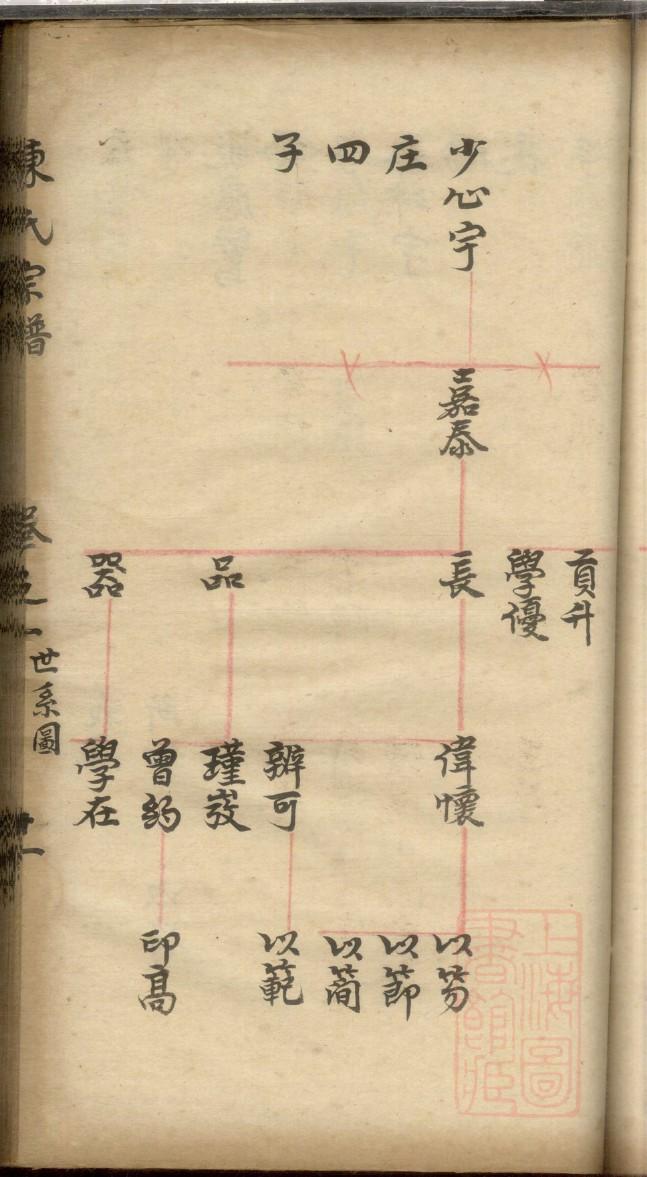 少心宇
庄
四
子
嘉泰
貢升
學優
長
品
器
偉懷
辦可
瑾𡵆
曾約
學在
以笏
以節
以簡
以範
印高
陳氏宗譜
卷之一
世系圖
廿一
上海圖
書館藏